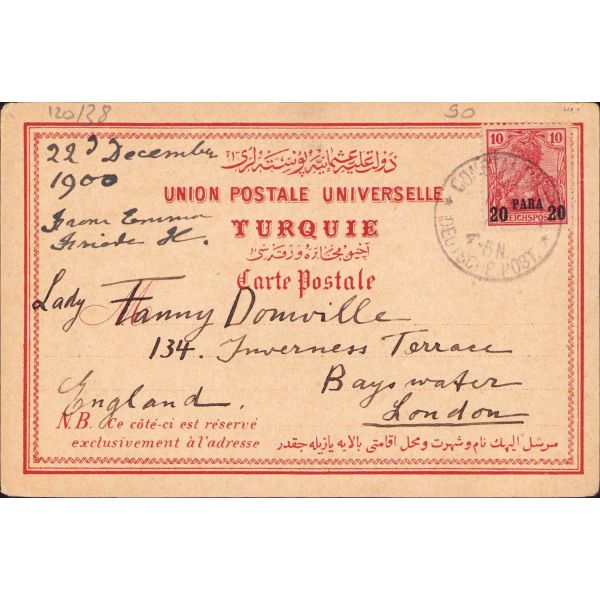 120/38
50
22d December
1900
From Emma
Friede H.
دولت علیهٔ عثمانیه پوسته لری
UNION POSTALE UNIVERSELLE
TURQUIE
Carte Postale
10 10
PARA
20 20
REICHSPOST
4-5N.
* DEUTSCHE POST. *
Lady Fanny Domville
134. Inverness Terrace
Bayswater
London
England.
N.B. Ce côté-ci est réservé
exclusivement à l'adresse
مرسل الیهك نام و شهرت و محل اقامتی بالایه یازیله جقدر